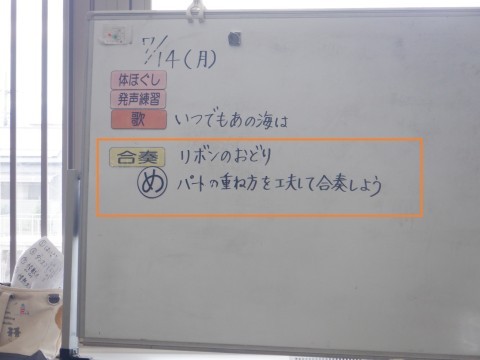 7/14(月)
体ほぐし
発声練習
歌 いつでもあの海は
合奏 リボンのおどり
め パートの重ね方を工夫して合奏しよう